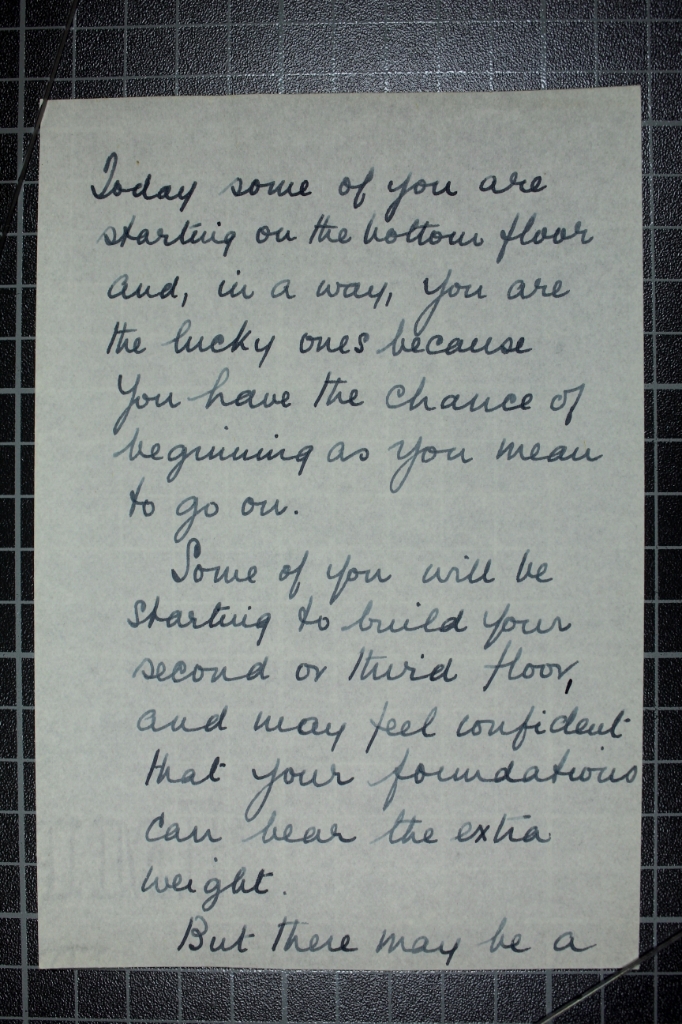 Today some of you are
starting on the bottom floor
and, in a way, you are
the lucky ones because
you have the chance of
beginning as you mean
to go on.
Some of you will be
starting to build your
second or third floor,
and may feel confident
that your foundations
can bear the extra
weight.
But there may be a